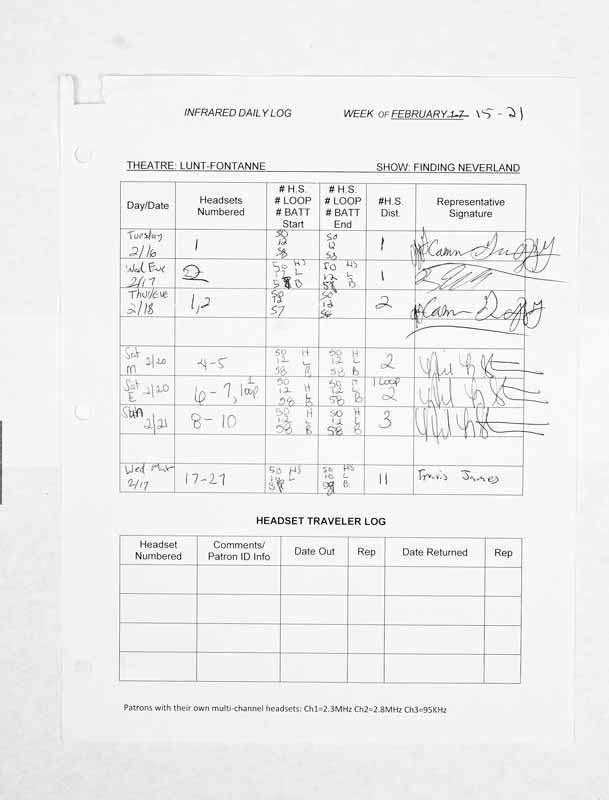 INFRARED DAILY LOG WEEK OF FEBRUARY 1-7 15-21
THEATRE: LUNT-FONTANNE SHOW: FINDING NEVERLAND
Day/Date Headsets Numbered # H.S. # LOOP # BATT Start # H.S. # LOOP # BATT End #H.S. Dist. Representative Signature
Tuesday 2/16 1 50 12 58 50 12 53 1
Wed Eve 2/17 2 50 HS 12 L B 50 HS 12 L 58 B 1
Thur/Eve 2/18 1,2 50 12 57 50 12 56 2
Sat M 2/20 4-5 50 H 12 L 58 B 50 H 12 L 58 B 2
Sat E 2/20 6-7, 1 loop 50 12 H L 58 B 50 H 12 L 58 B 1 Loop 2
Sun 2/21 8-10 50 H 12 L 58 B 50 H 12 L 58 B 3
Wed Mat 2/17 17-27 50 HS 10 L 50 HS 10 L B 11 Travis James
HEADSET TRAVELER LOG
Headset Numbered Comments/ Patron ID Info Date Out Rep Date Returned Rep
Patrons with their own multi-channel headsets: Ch1=2.3MHz Ch2=2.8MHz Ch3=95KHz